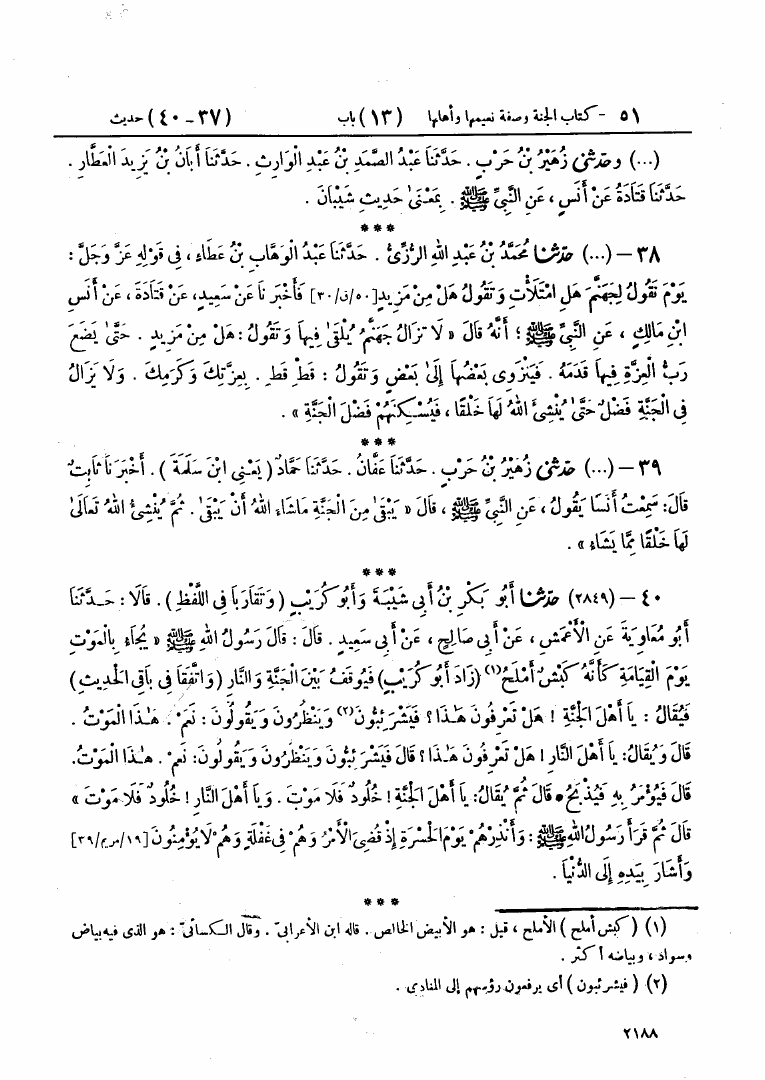 ٥١ - كتاب الجنة وصفة نعيمها وأهلها (١٣) باب (٣٧ - ٤٠) حديث
(...) وحدثنى زُهَيْرُ بْنُ حَرْبٍ . حَدَّثَنَا عَبْدُ الصَّمَدِ بْنُ عَبْدِ الْوَارِثِ . حَدَّثَنَا أَبَانُ بْنُ يَزِيدَ الْعَطَّارِ .
حَدَّثَنَا قَتَادَةُ عَنْ أَنَسٍ ، عَنِ النَّبِيِّ ﷺ . بِمَعْنَىٰ حَدِيثِ شَيْبَانَ .
***
٣٨ – (...) حدثنا مُحَمَّدُ بْنُ عَبْدِ اللهِ الرُّزِّىُّ . حَدَّثَنَا عَبْدُ الْوَهَّابِ بْنُ عَطَاءٍ ، فِى قَوْلِهِ عَزَّ وَجَلَّ :
يَوْمَ نَقُولُ لِجَهَنَّمَ هَلِ امْتَلَأْتِ وَتَقُولُ هَلْ مِنْ مَزِيدٍ [٥٠/ق/٣٠] فَأَخْبَرَنَا عَنْ سَعِيدٍ، عَنْ قَتَادَةَ ، عَنْ أَنَسِ
ابْنِ مَالِكٍ ، عَنِ النَّبِيِّ ﷺ ؛ أَنَّهُ قَالَ « لَا تَزَالُ جَهَنَّمُ يُلْقَىٰ فِيهَا وَتَقُولُ : هَلْ مِنْ مَزِيدٍ . حَتَّىٰ يَضَعَ
رَبُّ الْعِزَّةِ فِيهَا قَدَمَهُ . فَيَنْزَوِى بَعْضُهَا إِلَىٰ بَعْضٍ وَتَقُولُ : قَطْ قَطْ . بِعِزَّتِكَ وَكَرَمِكَ . وَلَا يَزَالُ
فِى الْجَنَّةِ فَضْلٌ حَتَّىٰ يُنْشِئَ اللهُ لَهَا خَلْقًا ، فَيُسْكِنَهُمْ فَضْلَ الْجَنَّةِ » .
***
٣٩ – (...) حدثنى زُهَيْرُ بْنُ حَرْبٍ . حَدَّثَنَا عَفَّانُ . حَدَّثَنَا حَمَّادٌ ( يَعْنِى ابْنَ سَلَمَةَ ) . أَخْبَرَنَا ثَابِتٌ
قَالَ: سَمِعْتُ أَنَسًا يَقُولُ ، عَنِ النَّبِيِّ ﷺ ، قَالَ « يَبْقَىٰ مِنَ الْجَنَّةِ مَا شَاءَ اللهُ أَنْ يَبْقَىٰ . ثُمَّ يُنْشِئُ اللهُ تَعَالَىٰ
لَهَا خَلْقًا مِمَّا يَشَاءُ » .
***
٤٠ – (٢٨٤٩) حدثنا أَبُو بَكْرِ بْنُ أَبِى شَيْبَةَ وَأَبُو كُرَيْبٍ ( وَتَقَارَبَا فِى اللَّفْظِ ) . قَالَا : حَدَّثَنَا
أَبُو مُعَاوِيَةَ عَنِ الْأَعْمَشِ ، عَنْ أَبِى صَالِحٍ ، عَنْ أَبِى سَعِيدٍ . قَالَ : قَالَ رَسُولُ اللهِ ﷺ « يُجَاءُ بِالْمَوْتِ
يَوْمَ الْقِيَامَةِ كَأَنَّهُ كَبْشٌ أَمْلَحُ(١) (زَادَ أَبُو كُرَيْبٍ) فَيُوقَفُ بَيْنَ الْجَنَّةِ وَالنَّارِ (وَاتَّفَقَا فِى بَاقِى الْحَدِيثِ)
فَيُقَالُ : يَا أَهْلَ الْجَنَّةِ ! هَلْ تَعْرِفُونَ هَٰذَا ؟ فَيَشْرَئِبُّونَ(٢) وَيَنْظُرُونَ وَيَقُولُونَ : نَعَمْ . هَٰذَا الْمَوْتُ .
قَالَ وَيُقَالُ: يَا أَهْلَ النَّارِ ! هَلْ تَعْرِفُونَ هَٰذَا ؟ قَالَ فَيَشْرَئِبُّونَ وَيَنْظُرُونَ وَيَقُولُونَ: نَعَمْ . هَٰذَا الْمَوْتُ.
قَالَ فَيُؤْمَرُ بِهِ فَيُذْبَحُ . قَالَ ثُمَّ يُقَالُ: يَا أَهْلَ الْجَنَّةِ ! خُلُودٌ فَلَا مَوْتَ . وَيَا أَهْلَ النَّارِ ! خُلُودٌ فَلَا مَوْتَ »
قَالَ ثُمَّ قَرَأَ رَسُولُ اللهِ ﷺ : وَأَنْذِرْهُمْ يَوْمَ الْحَسْرَةِ إِذْ قُضِىَ الْأَمْرُ وَهُمْ فِى غَفْلَةٍ وَهُمْ لَا يُؤْمِنُونَ [١٩/مريم/٣٩]
وَأَشَارَ بِيَدِهِ إِلَى الدُّنْيَا .
***
(١) ( كبش أملح ) الأملح ، قيل : هو الأبيض الخالص . قاله ابن الأعرابىّ . وقال الكسائىّ : هو الذى فيه بياض
وسواد ، وبياضه أكثر .
(٢) ( فيشرئبون ) أى يرفعون رؤسهم إلى المنادى .
٢١٨٨